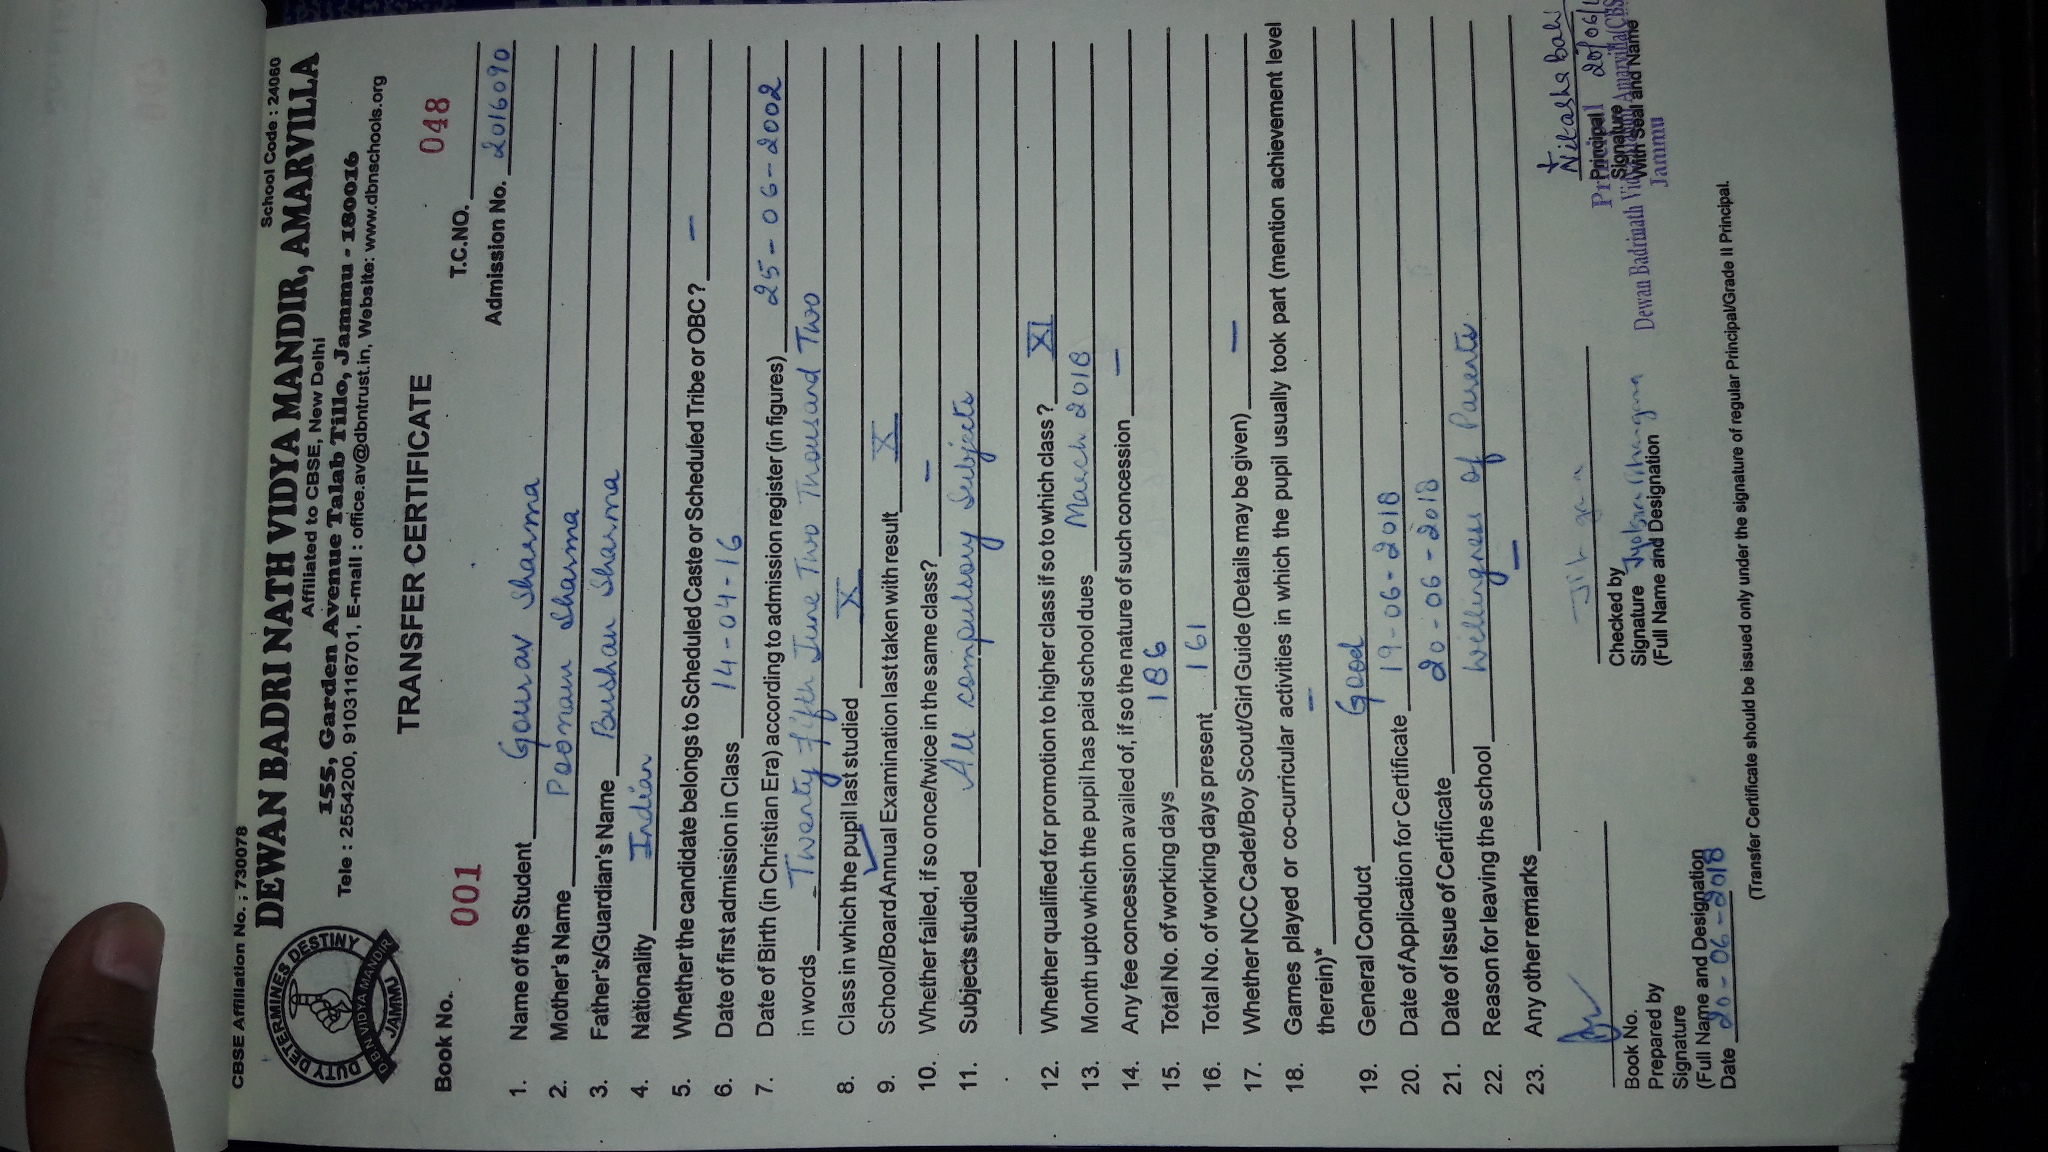 CBSE Affiliation No. ; 730078 School Code : 24060
DEWAN BADRI NATH VIDYA MANDIR, AMARVILLA
Affiliated to CBSE, New Delhi
155, Garden Avenue Talab Tillo, Jammu - 180016
Tele : 2554200, 9103116701, E-mail : office.av@dbntrust.in, Website: www.dbnschools.org
DUTY DETERMINES DESTINY
DBN VIDYA MANDIR
JAMMU
TRANSFER CERTIFICATE
Book No. 001 T.C.NO. 048
Admission No. 2016090
1. Name of the Student Gourav Sharma
2. Mother's Name Poonam Sharma
3. Father's/Guardian's Name Bushan Sharma
4. Nationality Indian
5. Whether the candidate belongs to Scheduled Caste or Scheduled Tribe or OBC? —
6. Date of first admission in Class 14-04-16
7. Date of Birth (in Christian Era) according to admission register (in figures) 25-06-2002
in words Twenty fifth June Two Thousand Two
8. Class in which the pupil last studied X
9. School/Board Annual Examination last taken with result X
10. Whether failed, if so once/twice in the same class? —
11. Subjects studied All compulsory Subjects
12. Whether qualified for promotion to higher class if so to which class ? XI
13. Month upto which the pupil has paid school dues March 2018
14. Any fee concession availed of, if so the nature of such concession —
15. Total No. of working days 186
16. Total No. of working days present 161
17. Whether NCC Cadet/Boy Scout/Girl Guide (Details may be given) —
18. Games played or co-curricular activities in which the pupil usually took part (mention achievement level
therein)* —
19. General Conduct Good
20. Date of Application for Certificate 19-06-2018
21. Date of Issue of Certificate 20-06-2018
22. Reason for leaving the school Willingness of Parents
23. Any other remarks —
Book No.
Prepared by
Signature
(Full Name and Designation
Date 20-06-2018
Checked by
Signature
(Full Name and Designation
Principal
Signature
With Seal and Name
Principal
Dewan Badrinath
Jammu
(Transfer Certificate should be issued only under the signature of regular Principal/Grade II Principal.